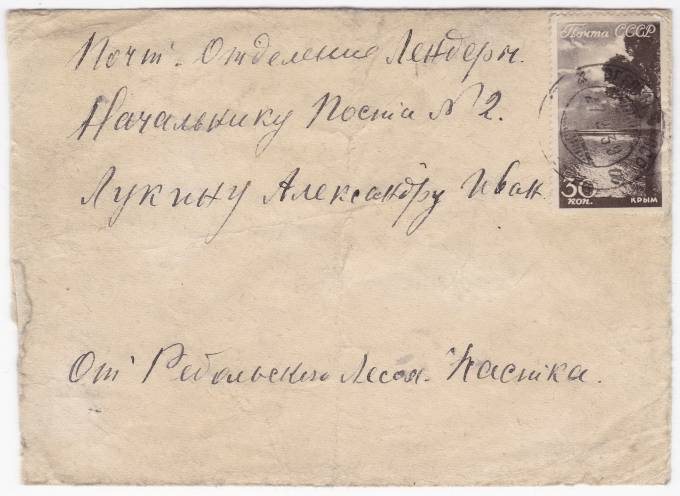 Почт. Отделение Лендеры.
Начальнику Поста № 2.
Лукину Александру Иван
От Ребольского Лесоя. Частка.
Почта СССР
30 коп.
КРЫМ